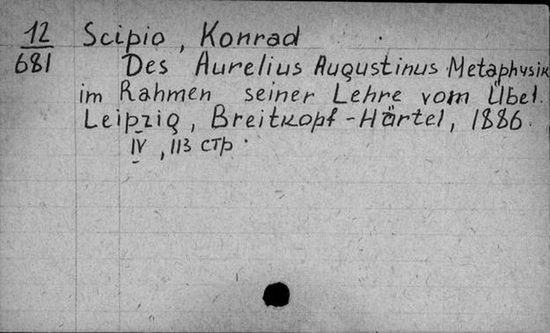 12
681
Scipio, Konrad
Des Aurelius Augustinus Metaphysik
im Rahmen seiner Lehre vom Übel.
Leipzig, Breitkopf-Härtel, 1886.
IV, 113 стр.